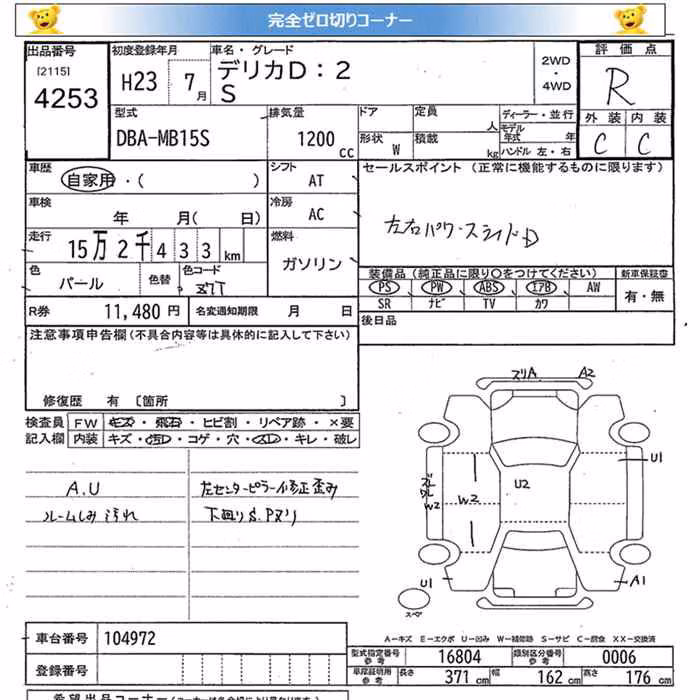 完全ゼロ切りコーナー
出品番号
[2115]
4253
初度登録年月
H23 7月
車名・グレード
デリカD：2
S
2WD
・
4WD
評価点
R
外装 内装
C C
型式
DBA-MB15S
排気量
1200 cc
ドア
形状 W
定員 人
積載 kg
ディーラー・並行
モデル年式 年
ハンドル 左・右
車歴
自家用・( )
シフト
AT
セールスポイント (正常に機能するものに限ります)
左右パワースライドD
車検
年 月( 日)
冷房
AC
走行
15万2千433km
燃料
ガソリン
色
パール
色替
色コード
Z7T
装備品 (純正品に限り○をつけてください)
PS PW ABS エアB AW
SR ナビ TV カワ
新車保証書
有・無
R券 11,480円
名変通知期限 月 日
後日品
注意事項申告欄(不具合内容等は具体的に記入して下さい)
修復歴 有 [箇所 ]
検査員記入欄
FW キズ・飛石・ヒビ割・リペア跡・×要
内装 キズ・汚れ・コゲ・穴・スレ・キレ・破レ
A.U
ルームしみ汚れ
左センターピラー修正歪み
下廻りS.Pヌリ
スリA. A2
U1
U2
W2
W2
U1
A1
スペア
A－キズ E－エクボ U－凹み W－補修跡 S－サビ C－腐食 XX－交換済
車台番号 104972
登録番号
型式指定番号 参考 16804
類別区分番号 参考 0006
車庫証明用 参考 長さ 371cm 幅 162cm 高さ 176cm
希望出品コーナー